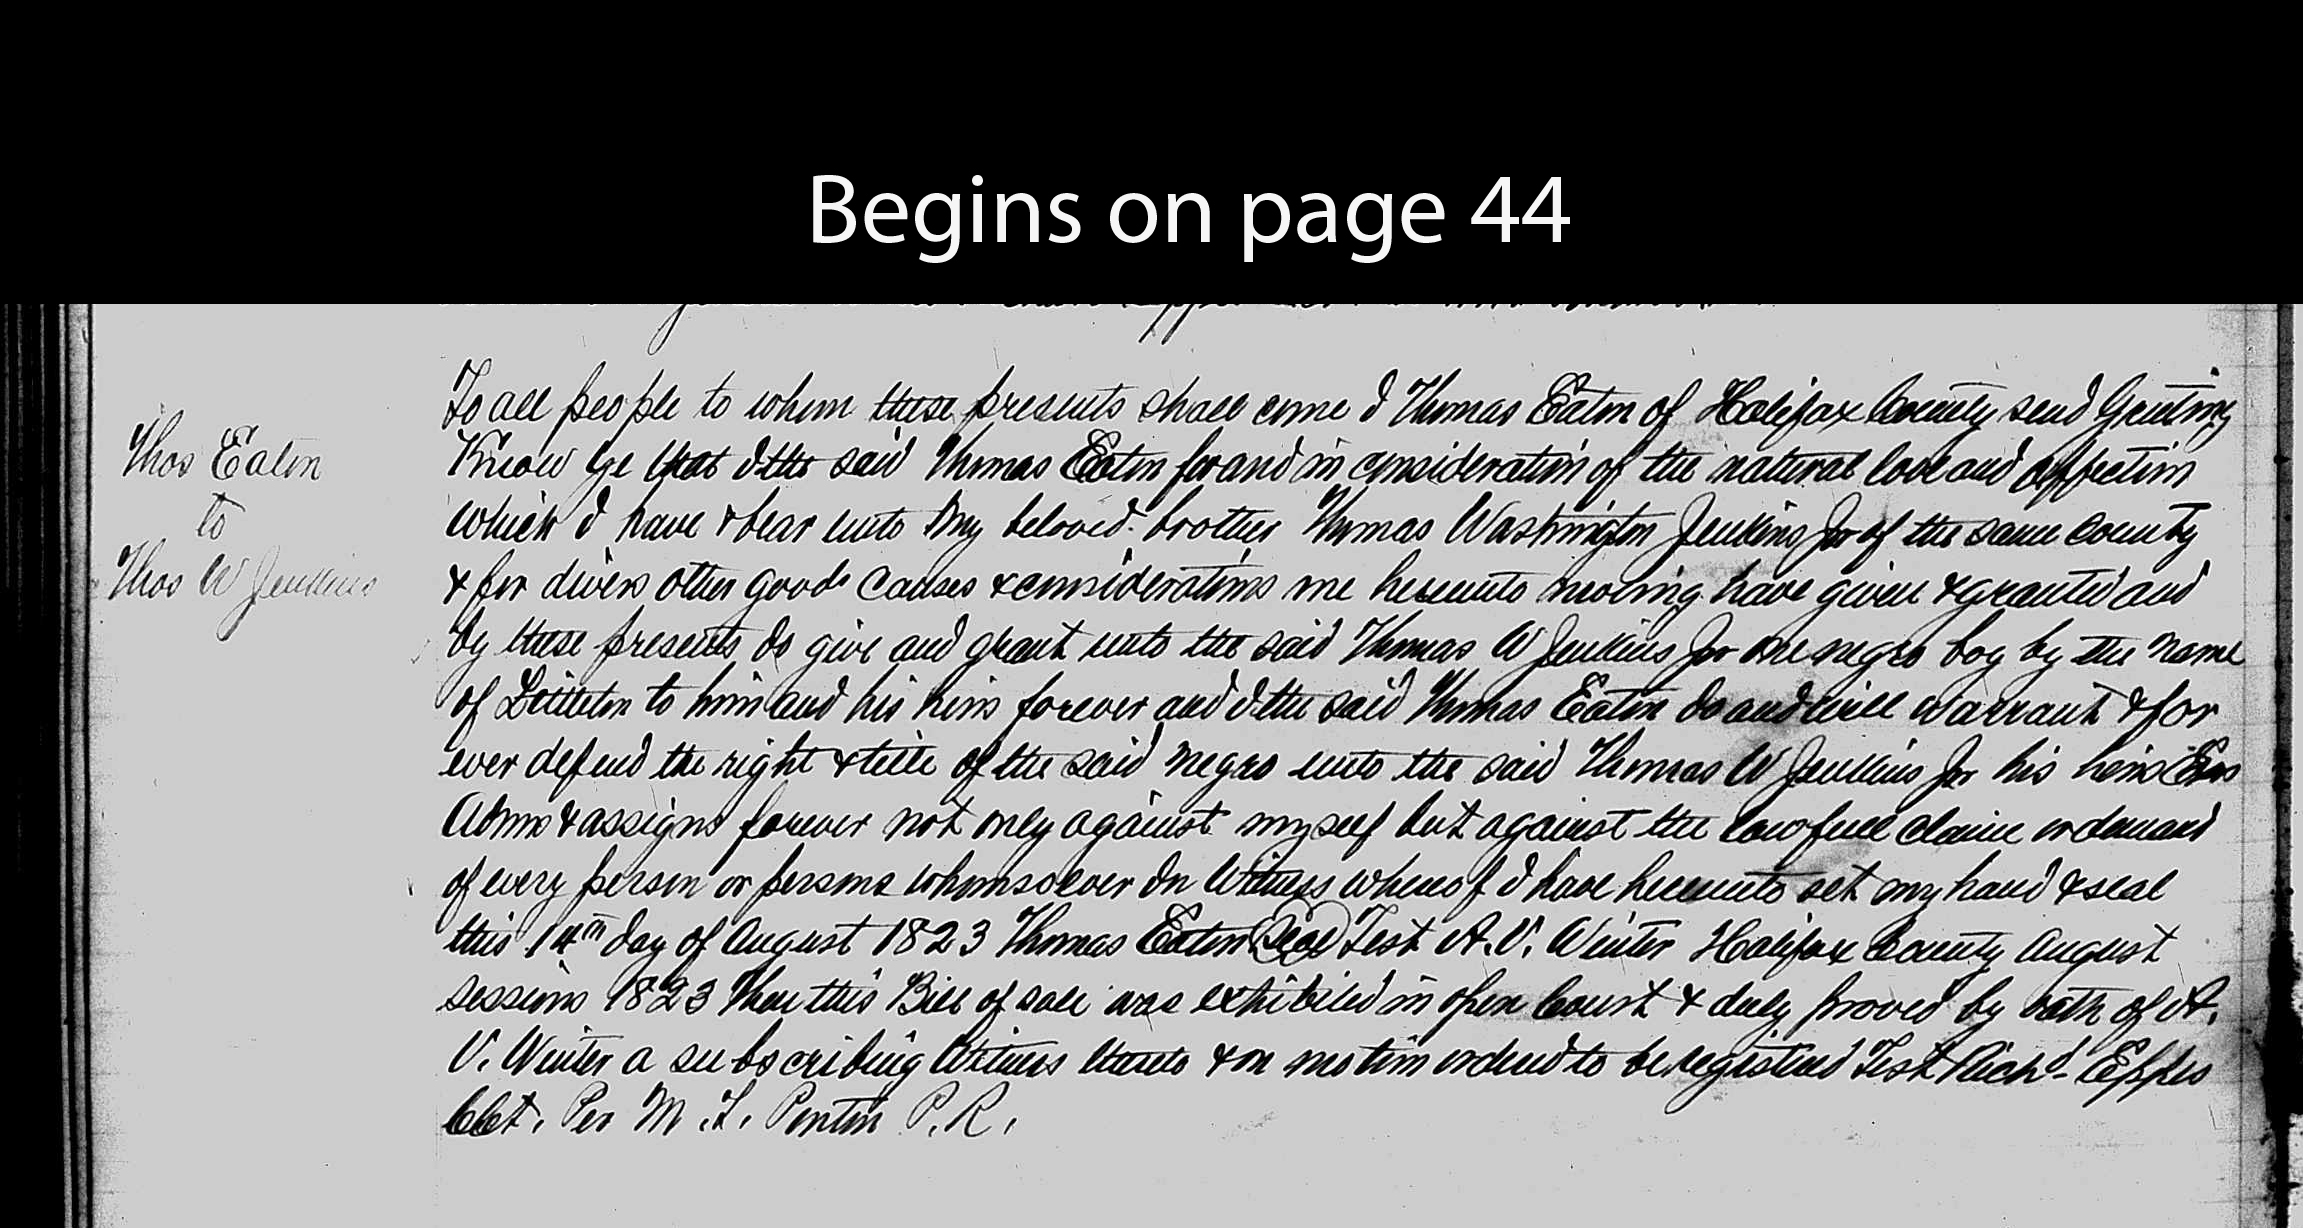 Begins on page 44
Thos Eaton
to
Thos W Jenkins
To all people to whom these presents shall come I Thomas Eaton of Halifax County send Greeting
Know ye that I the said Thomas Eaton for and in consideration of the natural love and affection
which I have & bear unto my beloved brother Thomas Washington Jenkins Jr of the same county
& for divers other good causes & considerations me hereunto moving have given & granted and
by these presents do give and grant unto the said Thomas W Jenkins Jr one negro boy by the name
of Littleton to him and his heirs forever and I the said Thomas Eaton do and will warrant & for
ever defend the right & title of the said negro unto the said Thomas W Jenkins Jr his heirs Exrs
Admrs & assigns forever not only against myself but against the lawfull claim or demand
of every person or persons whomsoever In Witness whereof I have hereunto set my hand & seal
this 14th day of August 1823 Thomas Eaton Seal Test A. V. Winter Halifax County August
sessions 1823 Then this Bill of sale was exhibited in open Court & duly proved by oath of A.
V. Winter a subscribing Witness thereto & on motion ordered to be registered Test Richd Eppes
Clk. Per M. T. Ponton P. R.